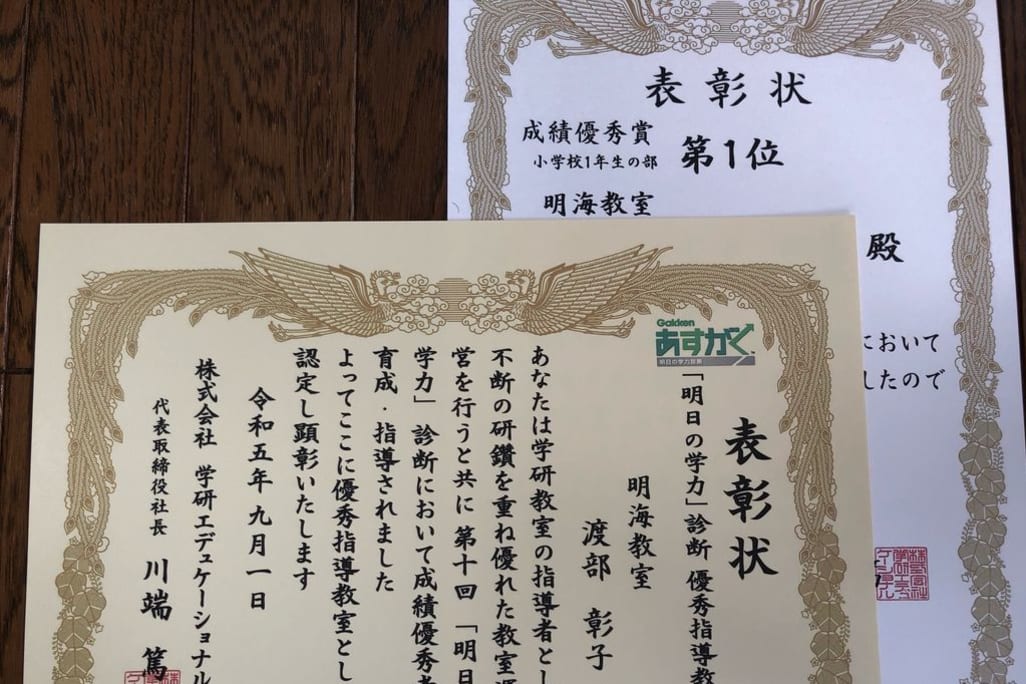 表彰状
成績優秀賞
小学校1年生の部
第1位
明海教室
殿
において
したので
Gakken
あすがく
明日の学力診断
表彰状
「明日の学力」診断 優秀指導教
明海教室
渡部 彰子
あなたは学研教室の指導者とし
不断の研鑽を重ね優れた教室運
営を行うと共に第十回「明日
学力」診断において成績優秀者
育成・指導されました
よってここに優秀指導教室とし
認定し顕彰いたします
令和五年九月一日
株式会社 学研エデュケーショナル
代表取締役社長 川端 篤